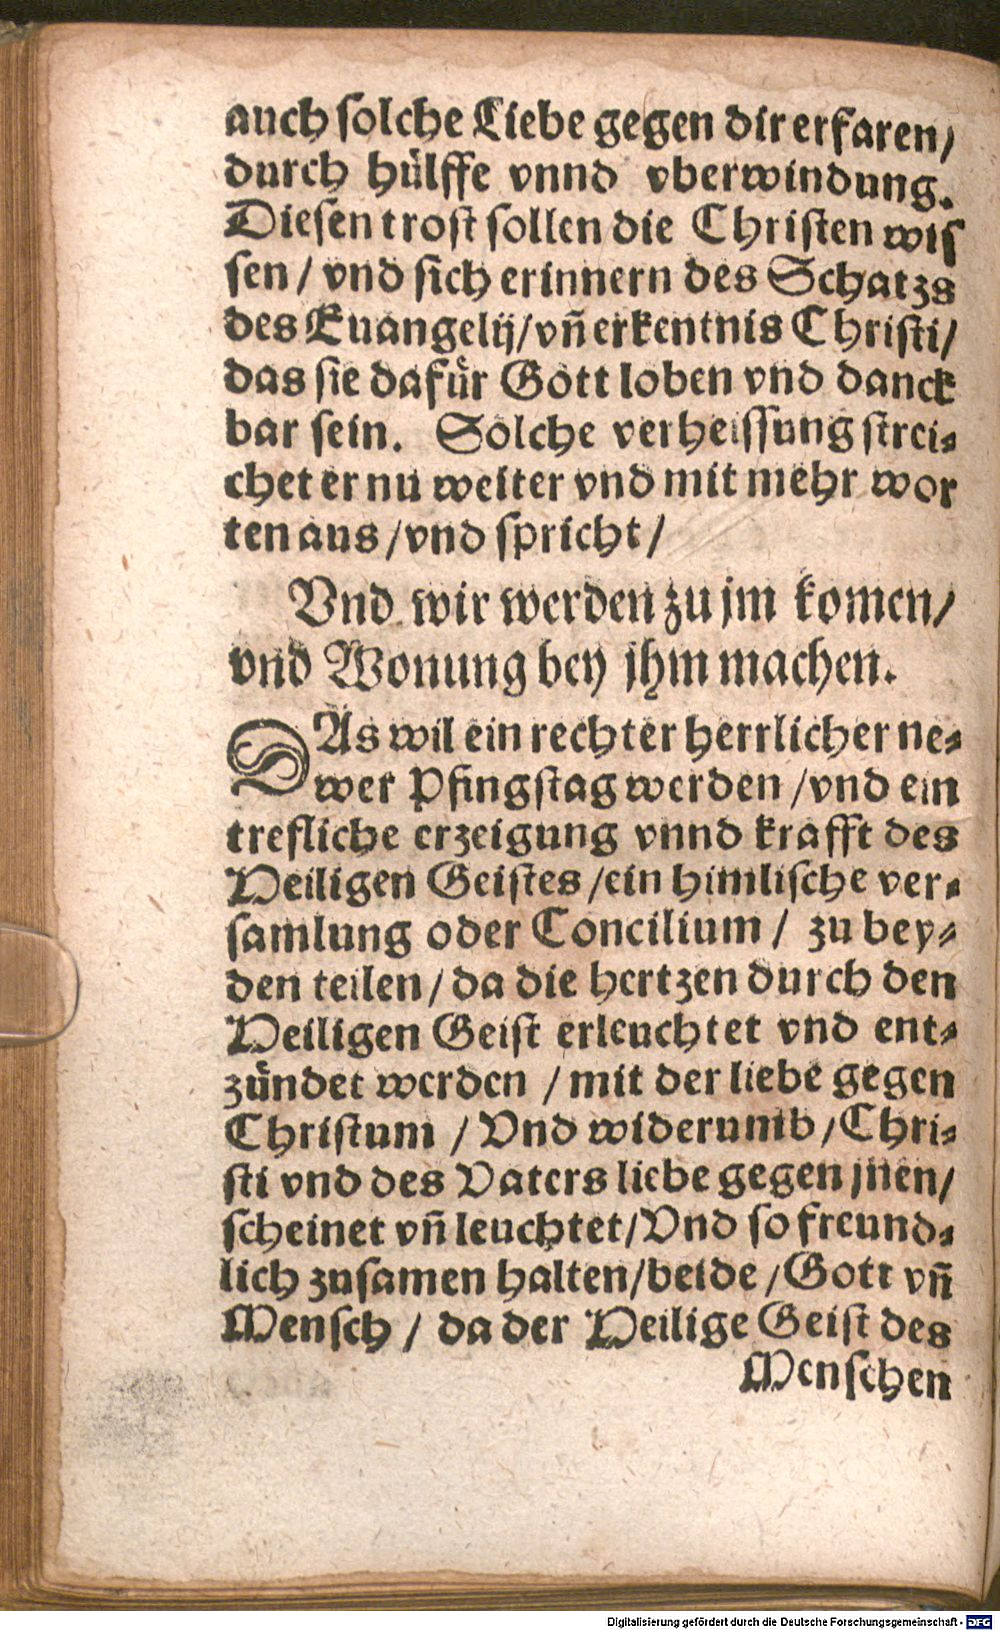 auch solche Liebe gegen dir erfaren/
durch hülffe vnnd vberwindung.
Diesen trost sollen die Christen wis
sen / vnd sich erinnern des Schatzs
des Euangelij/vñ erkentnis Christi/
das sie dafür Gott loben vnd danck
bar sein. Solche verheissung strei-
chet er nu weiter vnd mit mehr wor
ten aus /vnd spricht/
Vnd wir werden zu jm komen/
vnd Wonung bey jhm machen.
DAs wil ein rechter herrlicher ne-
wer Pfingstag werden /vnd ein
trefliche erzeigung vnnd krafft des
Heiligen Geistes /ein himlische ver-
samlung oder Concilium / zu bey-
den teilen/ da die hertzen durch den
Heiligen Geist erleuchtet vnd ent-
zündet werden / mit der liebe gegen
Christum / Vnd widerumb /Chri-
sti vnd des Vaters liebe gegen jnen/
scheinet vñ leuchtet/Vnd so freund-
lich zusamen halten/beide /Gott vñ
Mensch / da der Heilige Geist des
Menschen
Digitalisierung gefördert durch die Deutsche Forschungsgemeinschaft - DFG